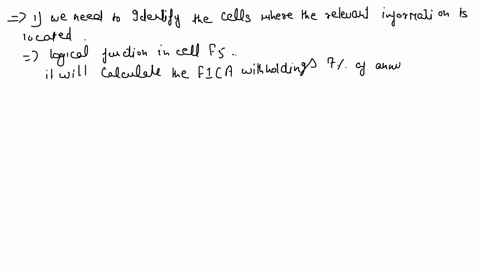 => 1) we need to Identify the cells where the relevant information is
located.
=> logical function in cell F5.
it will calculate the FICA withholdings 7% of annu